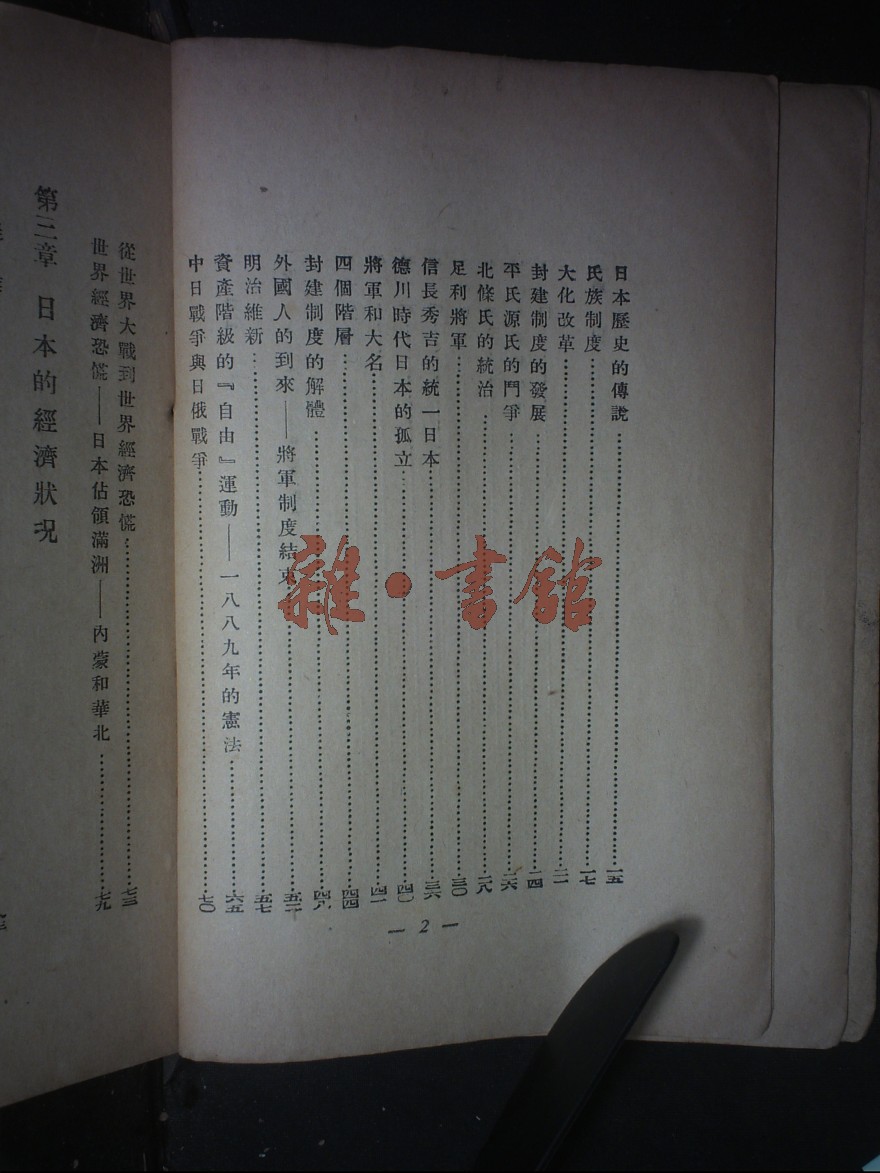 日本歷史的傳說…………一五
氏族制度…………一七
大化改革…………二一
封建制度的發展…………二四
平氏源氏的鬥爭…………二六
北條氏的統治…………二八
足利將軍…………三〇
信長秀吉的統一日本…………三六
德川時代日本的孤立…………四〇
將軍和大名…………四一
四個階層…………四四
封建制度的解體…………四八
外國人的到來——將軍制度結束…………五二
明治維新…………五七
資產階級的『自由』運動——一八八九年的憲法…………六五
中日戰爭與日俄戰爭…………七〇
— 2 —
從世界大戰到世界經濟恐慌…………七三
世界經濟恐慌——日本佔領滿洲——內蒙和華北…………七九
第三章 日本的經濟狀況
雜·書館